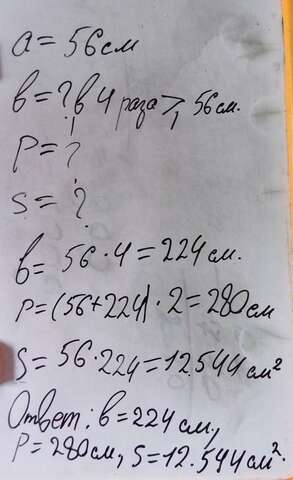 a = 56 см
в = ? в 4 раза > 56 см.
P = ?
S = ?
в = 56 · 4 = 224 см.
P = (56 + 224) · 2 = 280 см
S = 56 · 224 = 12.544 см²
Ответ: в = 224 см.,
P = 280 см, S = 12.544 см².